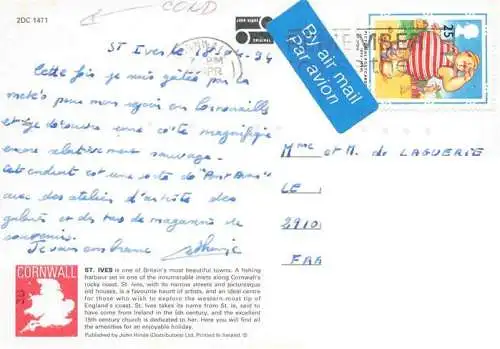 2DC 1471
COND
By air mail
Par avion
25
St Ives le
Cette fois je suis gâtée par la
météo pour mon séjour en Cornouailles
et je découvre une côte magnifique
encore relativement sauvage.
est une sorte de "Pont Aven"
avec des ateliers d'artiste des
galeries et des tas de magasins de
souvenirs.
Je vous embrasse
Mme et M. de LAGUERIE
LE
2910
FRA
CORNWALL
ST. IVES is one of Britain's most beautiful towns. A fishing
harbour set in one of the innumerable inlets along Cornwall's
rocky coast, St. Ives, with its narrow streets and picturesque
old houses, is a favourite haunt of artists, and an ideal centre
for those who wish to explore the western-most tip of
England's coast. St. Ives takes its name from St. Ia, said to
have come from Ireland in the 5th century, and the excellent
15th century church is dedicated to her. Here you will find all
the amenities for an enjoyable holiday.
Published by John Hinde (Distributors) Ltd. Printed in Ireland. ©